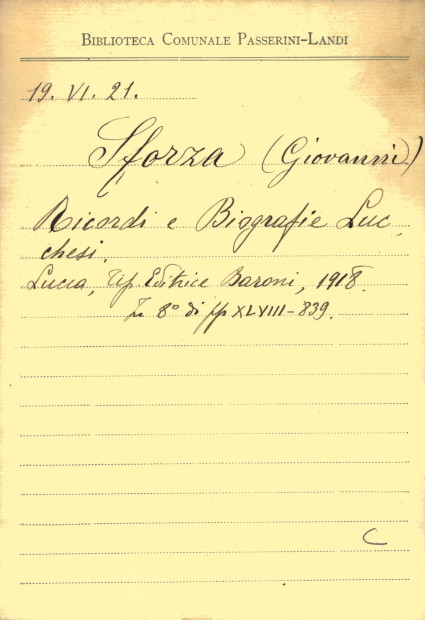 BIBLIOTECA COMUNALE PASSERINI-LANDI
19. VI. 21.
Sforza (Giovanni)
Ricordi e Biografie Luc
chesi.
Lucca, Tip Editrice Baroni, 1918.
In 8° di pp XLVIII-839.
C